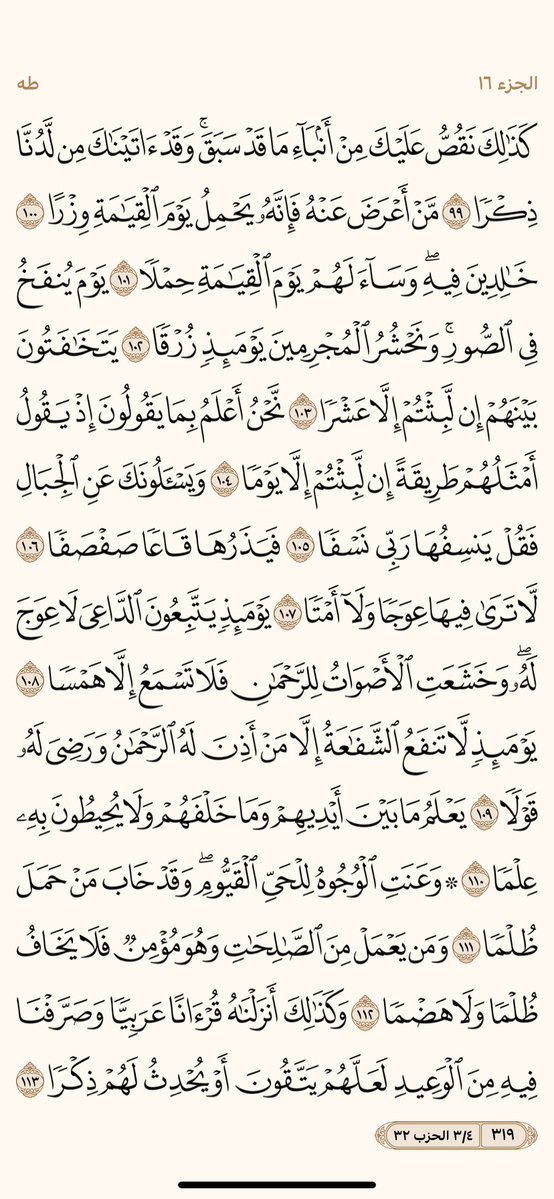 الجزء ١٦
طه
كَذَٰلِكَ نَقُصُّ عَلَيْكَ مِنْ أَنۢبَآءِ مَا قَدْ سَبَقَۚ وَقَدْ ءَاتَيْنَٰكَ مِن لَّدُنَّا
ذِكْرًا ٩٩ مَّنْ أَعْرَضَ عَنْهُ فَإِنَّهُۥ يَحْمِلُ يَوْمَ ٱلْقِيَٰمَةِ وِزْرًا ١٠٠
خَٰلِدِينَ فِيهِۖ وَسَآءَ لَهُمْ يَوْمَ ٱلْقِيَٰمَةِ حِمْلًا ١٠١ يَوْمَ يُنفَخُ
فِي ٱلصُّورِۚ وَنَحْشُرُ ٱلْمُجْرِمِينَ يَوْمَئِذٍ زُرْقًا ١٠٢ يَتَخَٰفَتُونَ
بَيْنَهُمْ إِن لَّبِثْتُمْ إِلَّا عَشْرًا ١٠٣ نَّحْنُ أَعْلَمُ بِمَا يَقُولُونَ إِذْ يَقُولُ
أَمْثَلُهُمْ طَرِيقَةً إِن لَّبِثْتُمْ إِلَّا يَوْمًا ١٠٤ وَيَسْـَٔلُونَكَ عَنِ ٱلْجِبَالِ
فَقُلْ يَنسِفُهَا رَبِّي نَسْفًا ١٠٥ فَيَذَرُهَا قَاعًا صَفْصَفًا ١٠٦
لَّا تَرَىٰ فِيهَا عِوَجًا وَلَآ أَمْتًا ١٠٧ يَوْمَئِذٍ يَتَّبِعُونَ ٱلدَّاعِيَ لَا عِوَجَ
لَهُۥۖ وَخَشَعَتِ ٱلْأَصْوَاتُ لِلرَّحْمَٰنِ فَلَا تَسْمَعُ إِلَّا هَمْسًا ١٠٨
يَوْمَئِذٍ لَّا تَنفَعُ ٱلشَّفَٰعَةُ إِلَّا مَنْ أَذِنَ لَهُ ٱلرَّحْمَٰنُ وَرَضِيَ لَهُۥ
قَوْلًا ١٠٩ يَعْلَمُ مَا بَيْنَ أَيْدِيهِمْ وَمَا خَلْفَهُمْ وَلَا يُحِيطُونَ بِهِۦ
عِلْمًا ١١٠ ۞ وَعَنَتِ ٱلْوُجُوهُ لِلْحَيِّ ٱلْقَيُّومِۖ وَقَدْ خَابَ مَنْ حَمَلَ
ظُلْمًا ١١١ وَمَن يَعْمَلْ مِنَ ٱلصَّٰلِحَٰتِ وَهُوَ مُؤْمِنٌ فَلَا يَخَافُ
ظُلْمًا وَلَا هَضْمًا ١١٢ وَكَذَٰلِكَ أَنزَلْنَٰهُ قُرْءَانًا عَرَبِيًّا وَصَرَّفْنَا
فِيهِ مِنَ ٱلْوَعِيدِ لَعَلَّهُمْ يَتَّقُونَ أَوْ يُحْدِثُ لَهُمْ ذِكْرًا ١١٣
٣١٩ ٣/٤ الحزب ٣٢